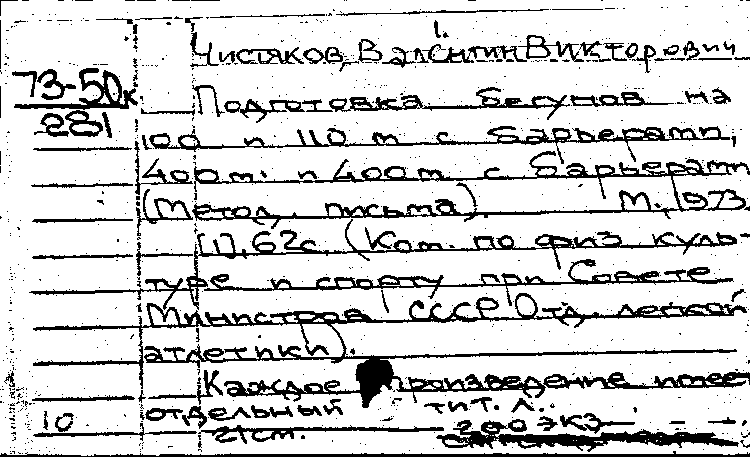 1.
Чистяков, Валентин Викторович
73-50к
281
Подготовка бегунов на
100 и 110 м с барьерами,
400 м. и 400 м с барьерами
(Метод. письма). М., 1973.
[1], 62 с. (Ком. по физ. куль-
туре и спорту при Совете
Министров СССР. Отд. легкой
атлетики).
Каждое произведение имеет
отдельный тит. л.
10
21 см. 200 экз